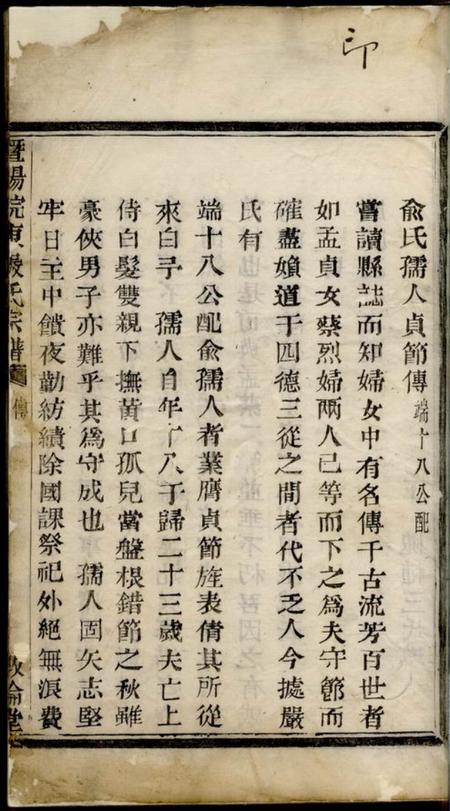 印
俞氏孺人貞節傳 端十八公配
嘗讀縣誌而知婦女中有名傳千古流芳百世者
如孟貞女蔡烈婦兩人已等而下之為夫守節而
確盡婦道于四德三從之間者代不乏人今據嚴
氏有
端十八公配俞孺人者業膺貞節旌表倩其所從
來白予 孺人自年十八于歸二十三歲夫亡上
侍白髮雙親下撫黃口孤兒當盤根錯節之秋雖
豪俠男子亦難乎其為守成也 孺人固矢志堅
牢日主中饋夜勤紡績除國課祭祀外絕無浪費
暨陽院東嚴氏宗譜 傳 敦倫堂